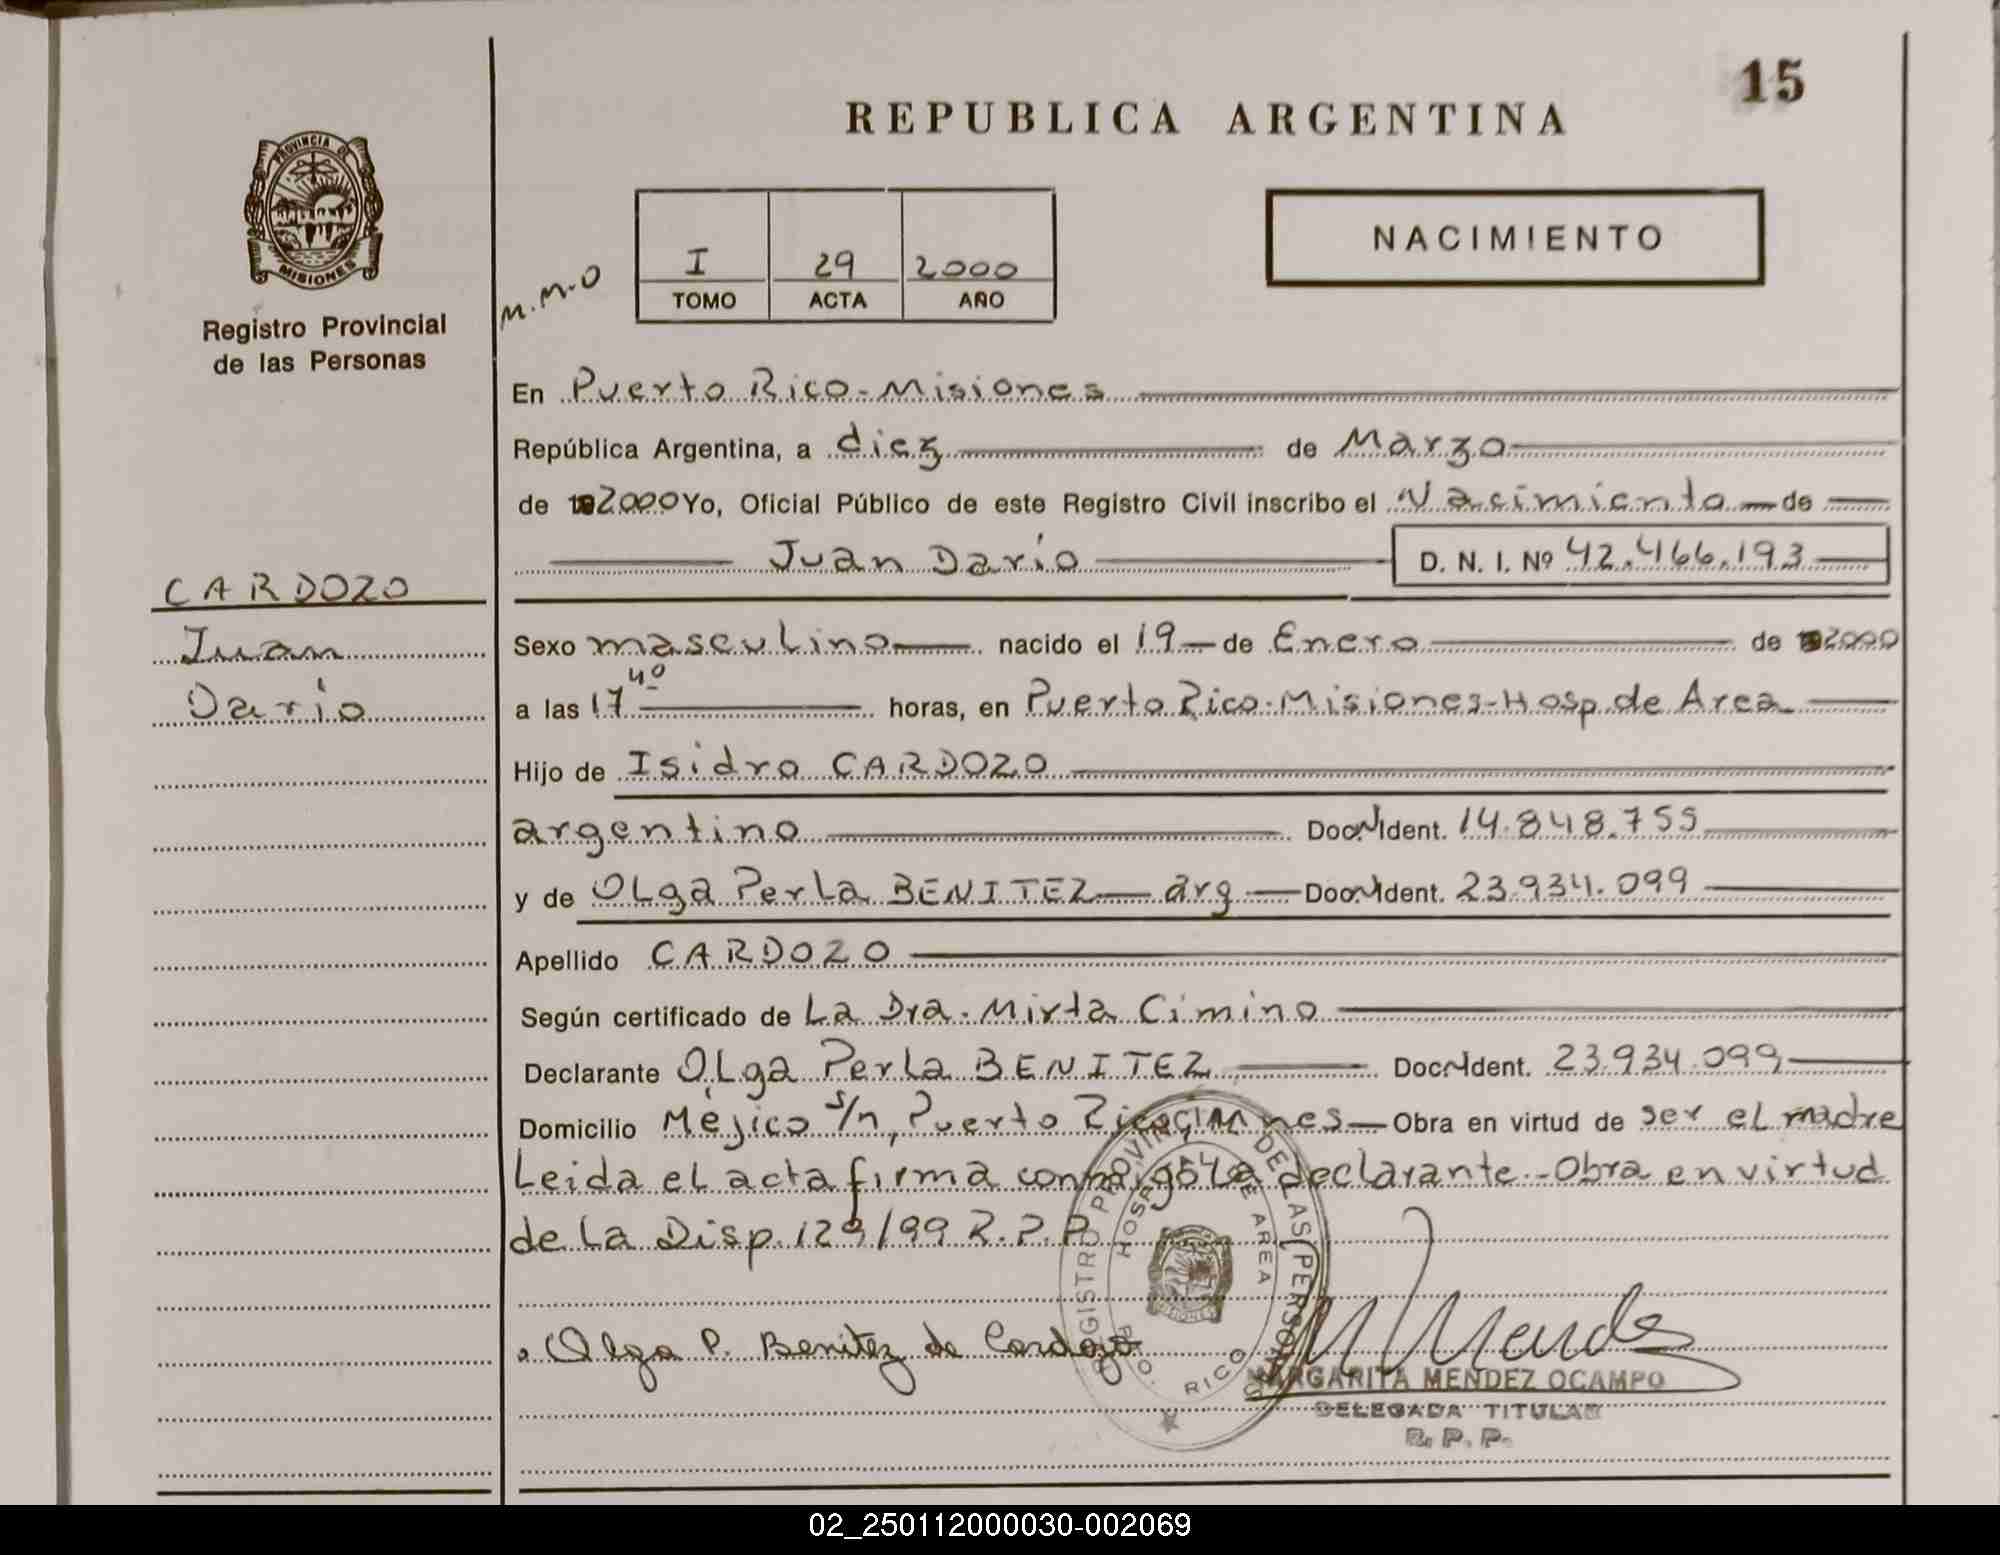 15
REPUBLICA ARGENTINA
PROVINCIA DE
MISIONES
Registro Provincial
de las Personas
M.M.O
I 29 2000
TOMO ACTA AÑO
NACIMIENTO
En Puerto Rico - Misiones
República Argentina, a diez de Marzo
de 2000 Yo, Oficial Público de este Registro Civil inscribo el Nacimiento de
Juan Dario D. N. I. Nº 42.466.193
CARDOZO
Juan
Dario
Sexo masculino nacido el 19 de Enero de 2000
a las 17 40 horas, en Puerto Rico - Misiones - Hosp. de Area
Hijo de Isidro CARDOZO
argentino Doc. N Ident. 14.848.755
y de OLga PerLa BENITEZ arg Doc. N Ident. 23.934.099
Apellido CARDOZO
Según certificado de La Dra. Mirta Cimino
Declarante OLga PerLa BENITEZ Doc N Ident. 23.934.099
Domicilio Méjico s/n, Puerto Rico, Mnes Obra en virtud de ser el madre
Leida el acta firma conmigo La declarante - Obra en virtud
de La Disp. 129/99 R.P.P
REGISTRO PROVINCIAL DE LAS PERSONAS
HOSPITAL DE AREA
PTO. RICO
MISIONES
Olga P. Benitez de Cardozo
M Mendez
MARGARITA MENDEZ OCAMPO
DELEGADA TITULAR
R. P. P.
02_250112000030-002069